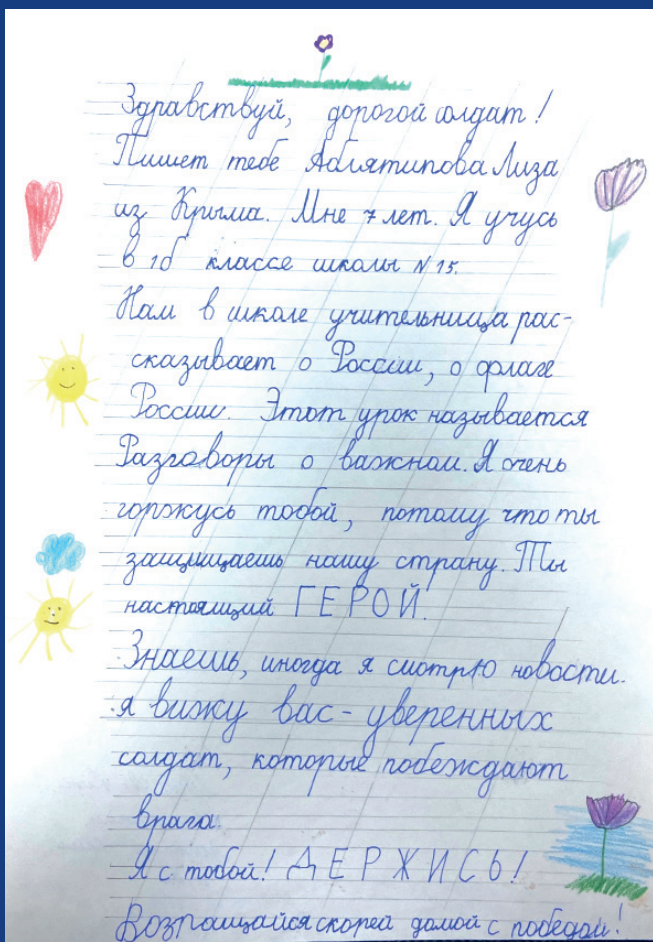 Здравствуй, дорогой солдат!
Пишет тебе Аблятипова Лиза
из Крыма. Мне 7 лет. Я учусь
в 1б классе школы №15.
Нам в школе учительница рас-
сказывает о России, о флаге
России. Этот урок называется
Разговоры о важном. Я очень
горжусь тобой, потому что ты
защищаешь нашу страну. Ты
настоящий ГЕРОЙ.
Знаешь, иногда я смотрю новости.
я вижу вас - уверенных
солдат, которые побеждают
врага.
Я с тобой! ДЕРЖИСЬ!
Возращайся скорей домой с победой!